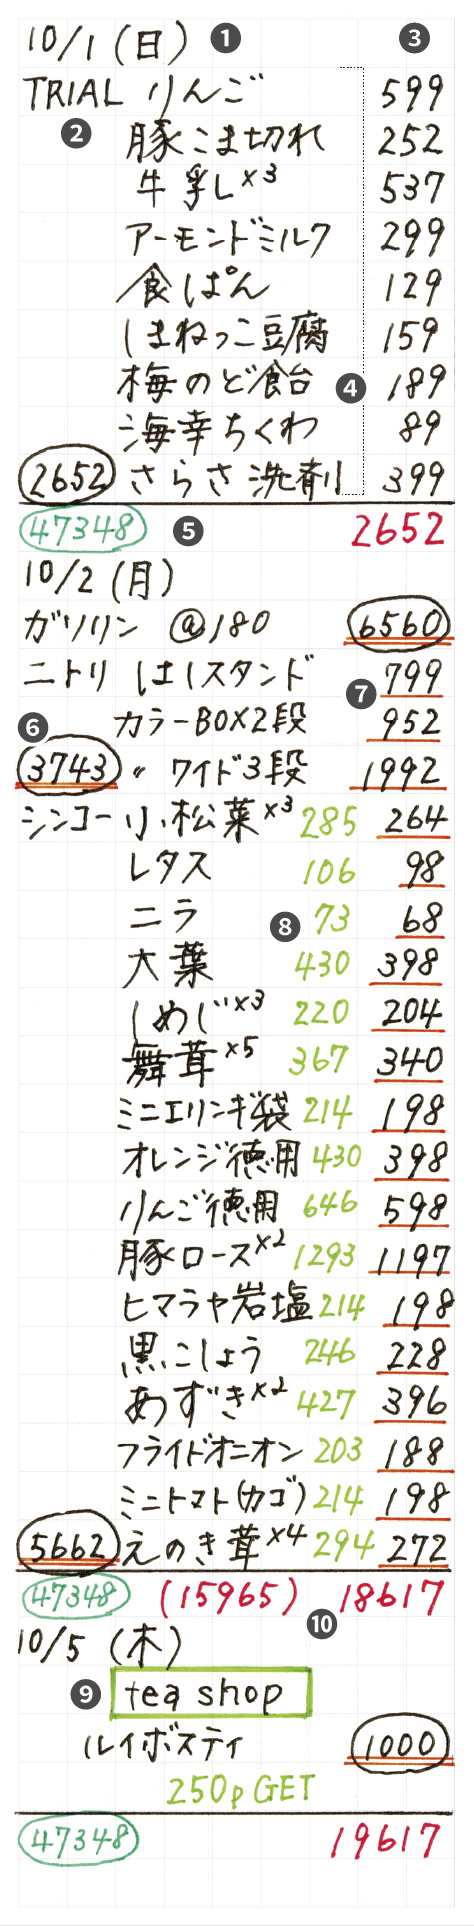 10/1(日) ❶ ❸
TRIAL りんご 599
❷ 豚こま切れ 252
牛乳×3 537
アーモンドミルク 299
食ぱん 129
しまねっこ豆腐 159
梅のど飴 ❹ 189
海幸ちくわ 89
2652 さらさ洗剤 399
47348 ❺ 2652
10/2(月)
ガソリン @180 6560
ニトリ はしスタンド 799
❼
カラーBOX2段 952
❻
3743 〃 ワイド3段 1992
シンコー 小松菜×3 285 264
レタス 106 98
ニラ ❽ 73 68
大葉 430 398
しめじ×3 220 204
舞茸×5 367 340
ミニエリンギ袋 214 198
オレンジ徳用 430 398
りんご徳用 646 598
豚ロース×2 1293 1197
ヒマラヤ岩塩 214 198
黒こしょう 246 228
あずき×2 427 396
フライドオニオン 203 188
ミニトマト(カゴ) 214 198
5662 えのき茸×4 294 272
47348 (15965) 18617
10/5(木) ❿
❾ tea shop
ルイボスティ 1000
250p GET
47348 19617